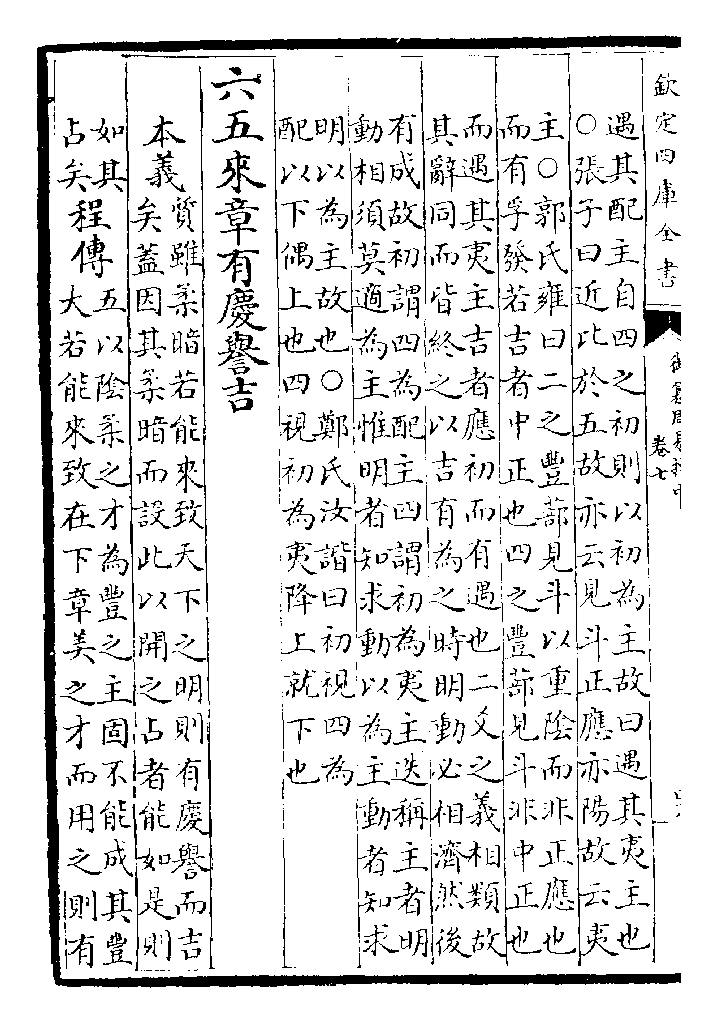 欽定四庫全書
御纂周易折中
卷七
遇其配主自四之初則以初為主故曰遇其夷主也
○張子曰近比於五故亦云見斗正應亦陽故云夷
主○郭氏雍曰二之豐蔀見斗以重陰而非正應也
而有孚發若吉者中正也四之豐蔀見斗非中正也
而遇其夷主吉者應初而有遇也二爻之義相類故
其辭同而皆終之以吉有為之時明動必相濟然後
有成故初謂四為配主四謂初為夷主迭稱主者明
動相須莫適為主惟明者知求動以為主動者知求
明以為主故也○鄭氏汝諧曰初視四為
配以下偶上也四視初為夷降上就下也
六五來章有慶譽吉
本義
質雖柔暗若能來致天下之明則有慶譽而吉
矣蓋因其柔暗而設此以開之占者能如是則
如其
占矣
程傳
五以陰柔之才為豐之主固不能成其豐
大若能來致在下章美之才而用之則有